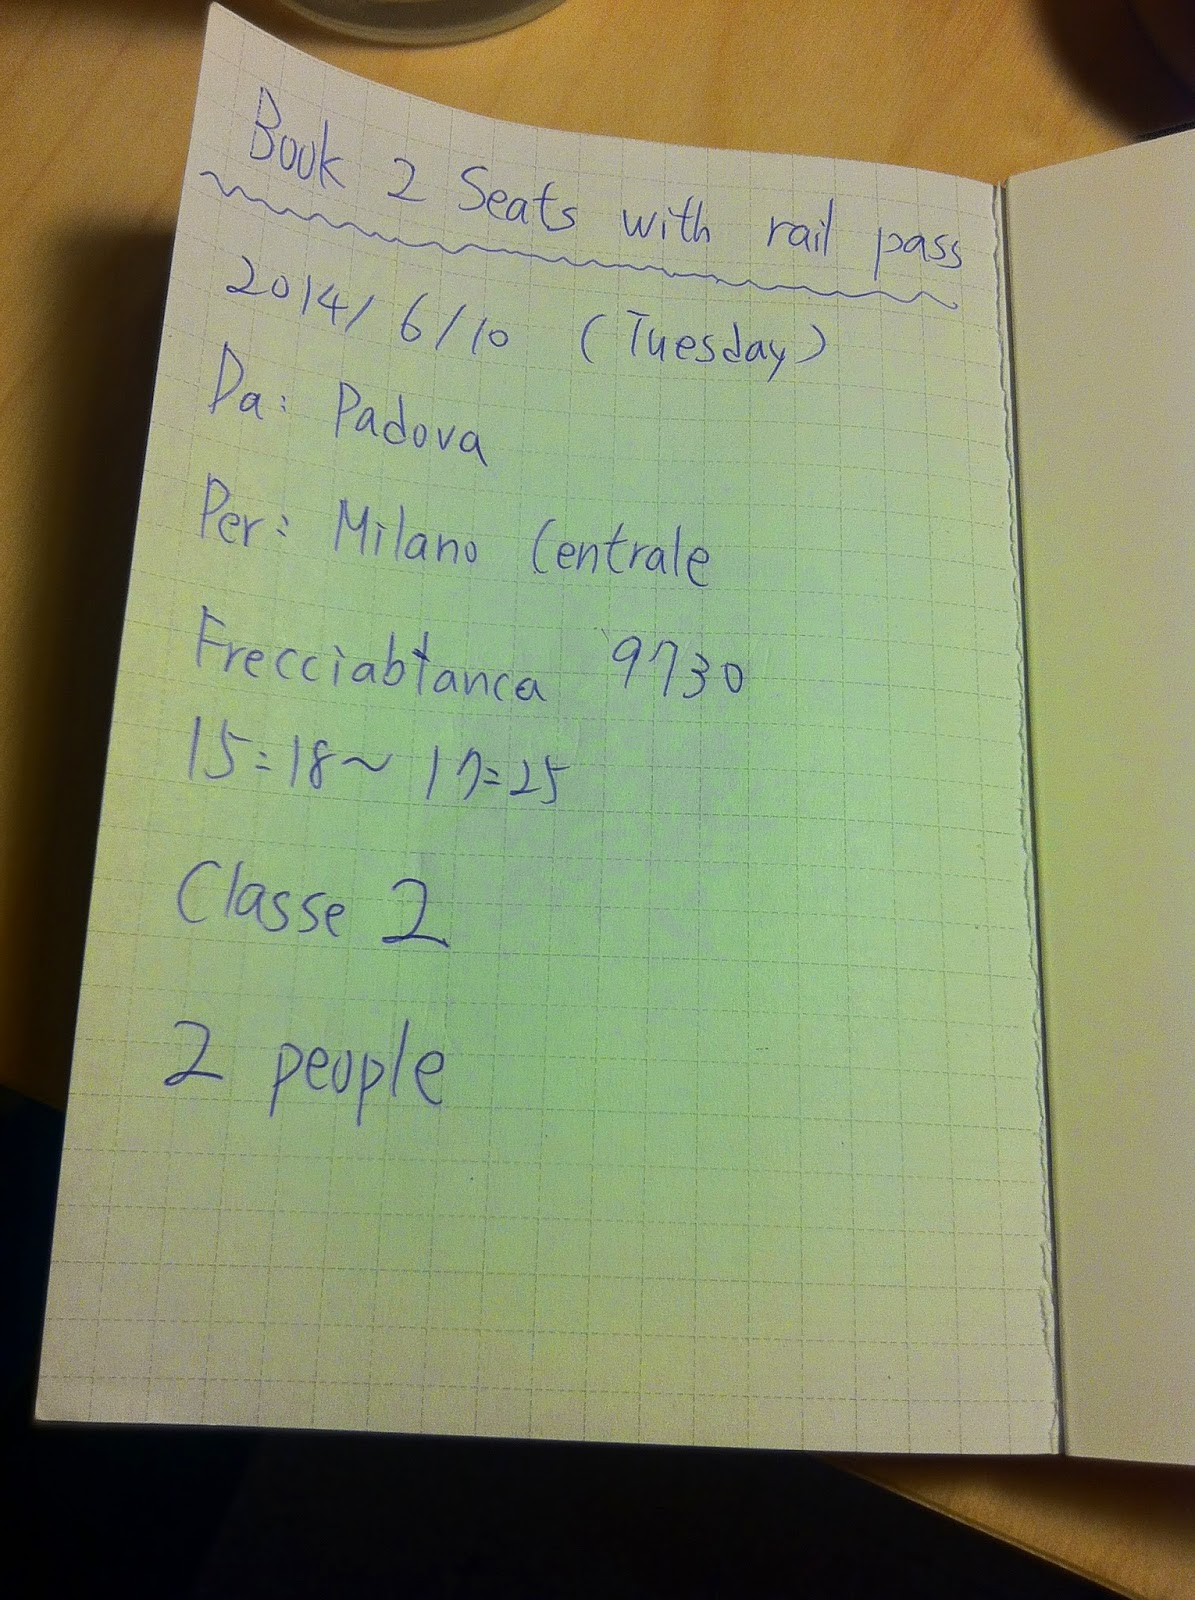 Book 2 Seats with rail pass
2014/6/10 (Tuesday)
Da: Padova
Per: Milano Centrale
Frecciabtanca 9730
15:18~17:25
Classe 2
2 people